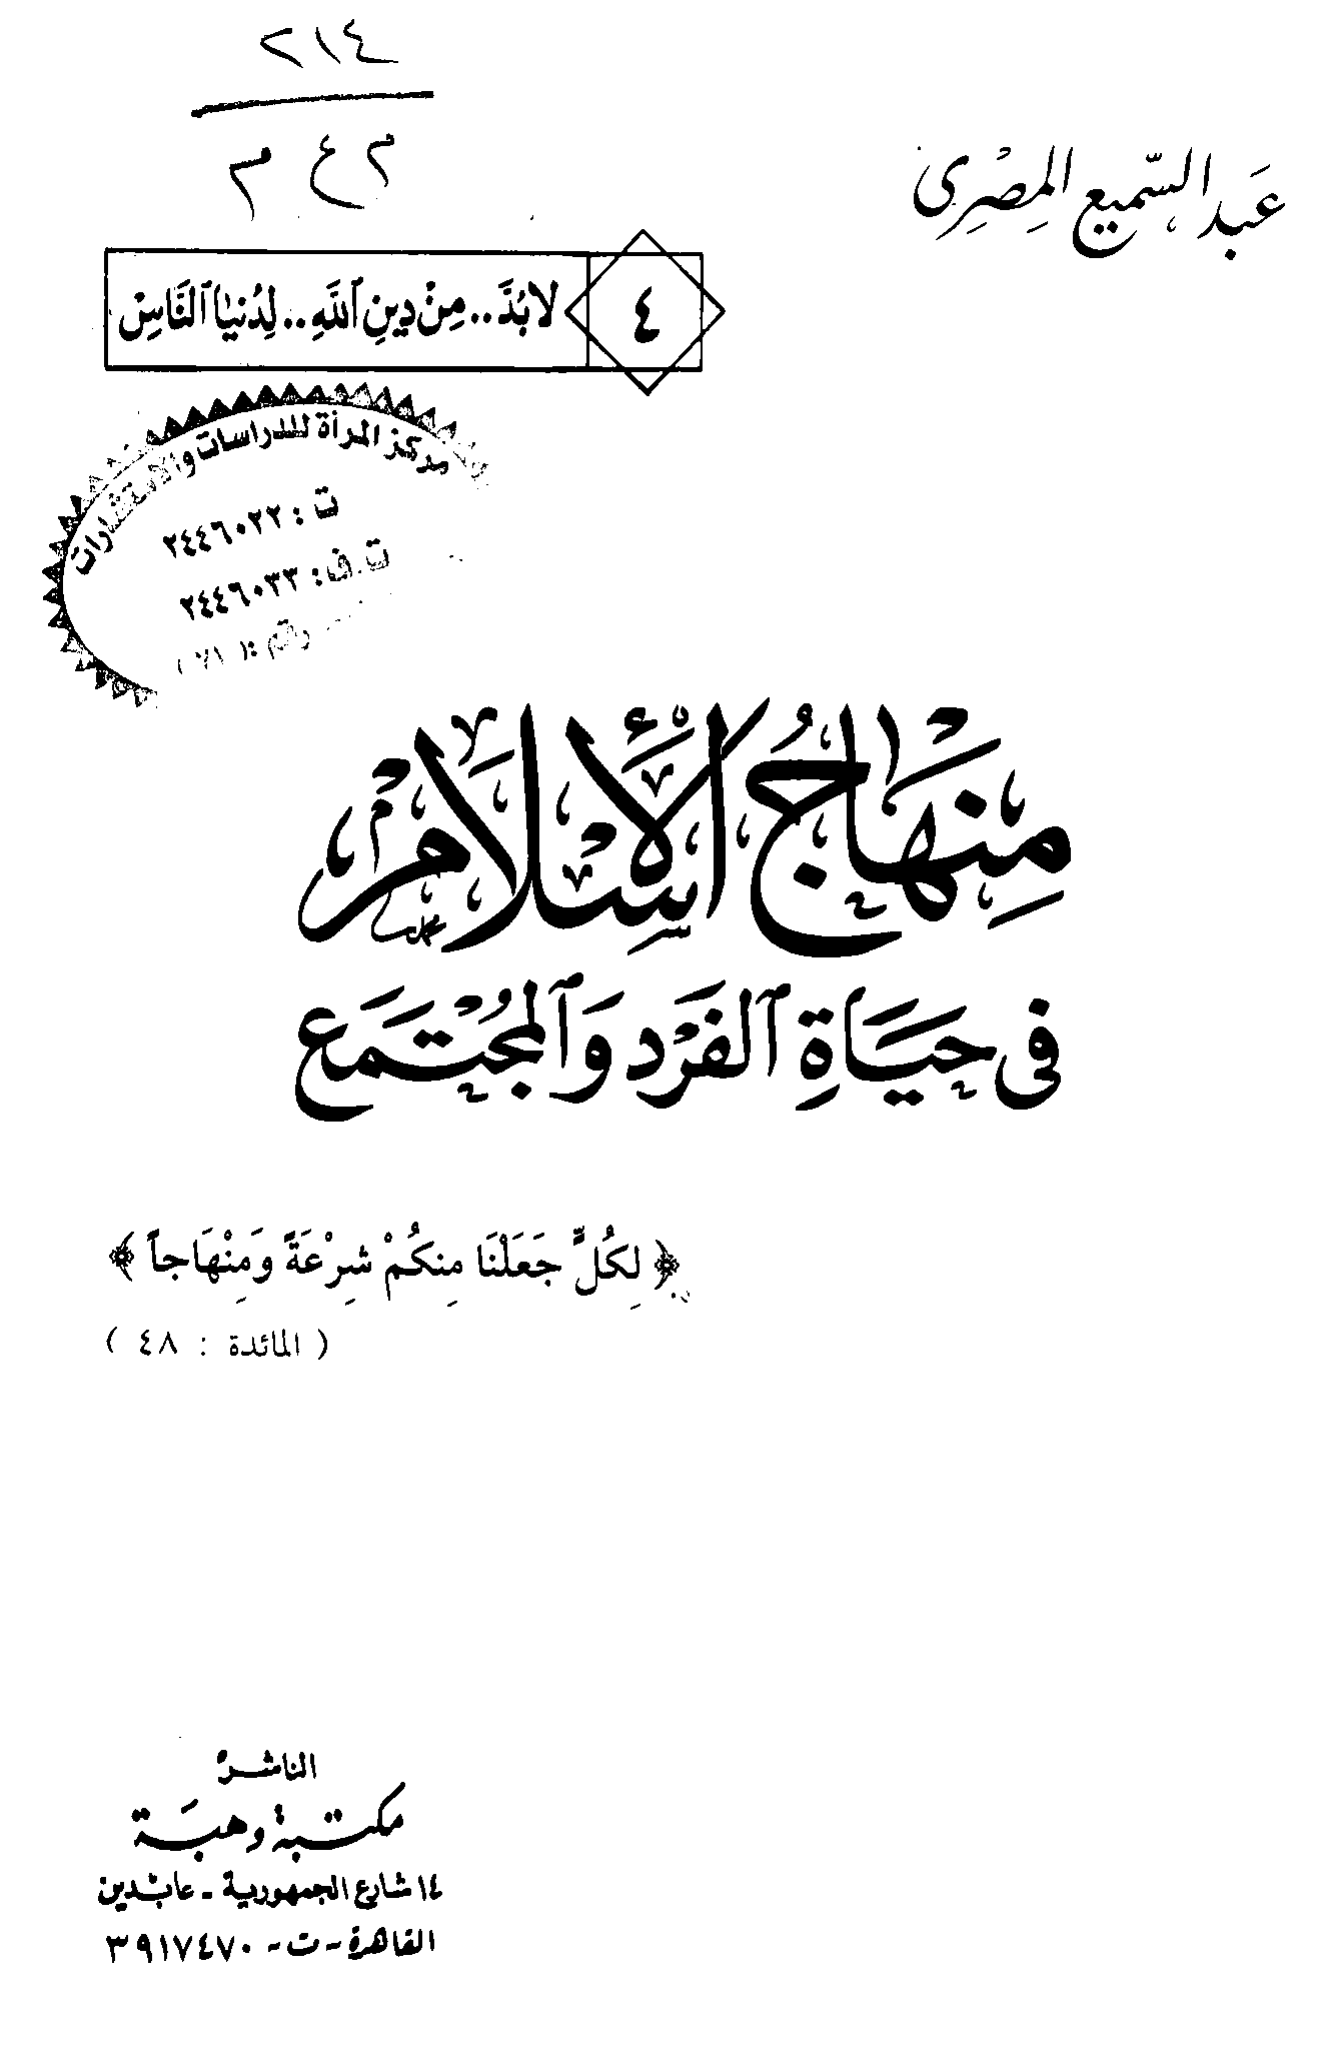 ٢١٤
م ع م
عَبد السَّميع المِصْرِى
٤
لابُدَّ.. مِنْ دِينِ ٱللَّهِ.. لِدُنيَا ٱلنَّاسِ
مركز المرأة للدراسات والاستشارات
ت : ٢٤٤٦٠٢٢
ت.ف: ٢٤٤٦٠٣٣
مِنْهَاجُ الْإِسْلَامِ
فى حَيَاةِ ٱلفَرْدِ وَٱلمُجْتَمَع
﴿ لِكُلٍّ جَعَلْنَا مِنكُمْ شِرْعَةً وَمِنْهَاجاً ﴾
( المائدة : ٤٨ )
الناشر
مكتبة وهبَة
١٤ شارع الجمهورية - عابدين
القاهرة - ت - ٣٩١٧٤٧٠